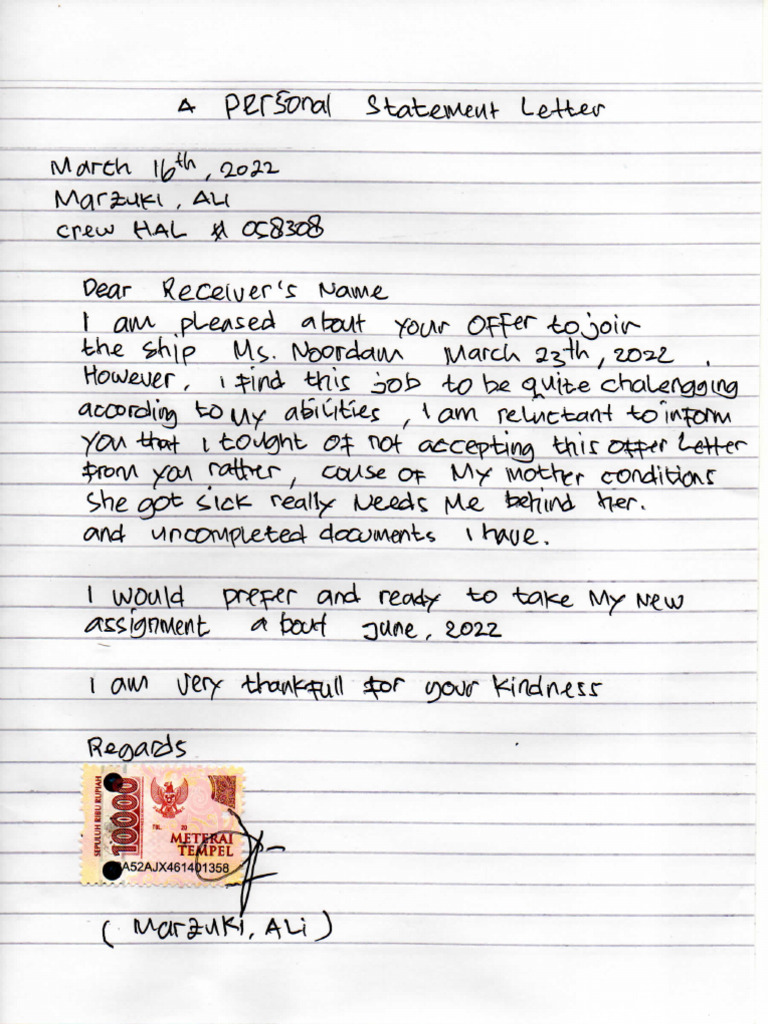 A Personal Statement Letter
March 16th, 2022
Marzuki, Ali
Crew HAL # 058308
Dear Receiver's Name
I am pleased about your offer to join
the ship Ms. Noordam March 23th, 2022.
However, i find this job to be quite chalengging
according to my abilities, I am reluctant to inform
you that i tought of not accepting this offer Letter
from you rather, couse of My mother conditions
She got sick really needs Me behind her.
and uncompleted documents i have.
I would prefer and ready to take My New
assignment about june, 2022
I am very thankfull for your kindness
Regards
SEPULUH RIBU RUPIAH
10000
TGL. 20
METERAI
TEMPEL
A52AJX461401358
(Marzuki, Ali)